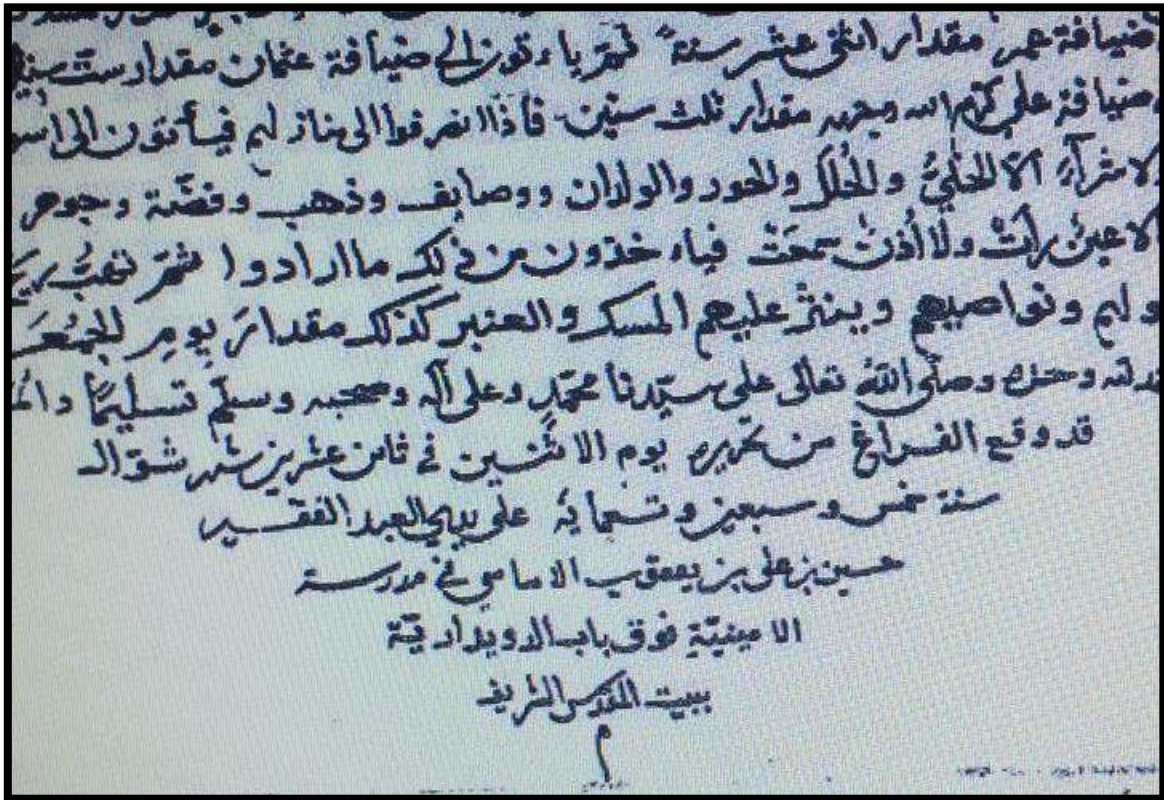 ضيافة عمر مقدار اثنى عشر سنة ثمّ ياءتون الى ضيافة عثمان مقدار ست سنين
ضيافة على كرّم الله وجهه مقدار ثلث سنين فاذا انصرفوا الى منازلهم فيأتون الى
لاشرآءَ الّا الحُلِيُّ والحُلَلُ والحور والولدان ووصايف وذهب وفضّة وجوهر
لا عينٌ رأتْ ولا اُذنٌ سمعَتْ فياءخذون من ذلك ما ارادوا ثمّ تهبُّ ريح
ولهم ونواصيهم وينثرُ عليهم المسك والعنبر كذلك مقدارَ يومِ الجُمُعَة
وحده وصلّى اللهُ تعالى على سيّدنا محمّدٍ وعلى آله وصحبه وسلّم تسليمًا
قد وقع الفراغ من تحريره يوم الاثنين فى ثامن عشرين شهر شوّال
سنة خمس وسبعين وتسعمايه على يدي العبد الفقير
حسين بن على بن يعقوب الامامي فى مدرسة
الامينيّة فوق باب الدويداريّة
ببيت المقدس الشريف
م